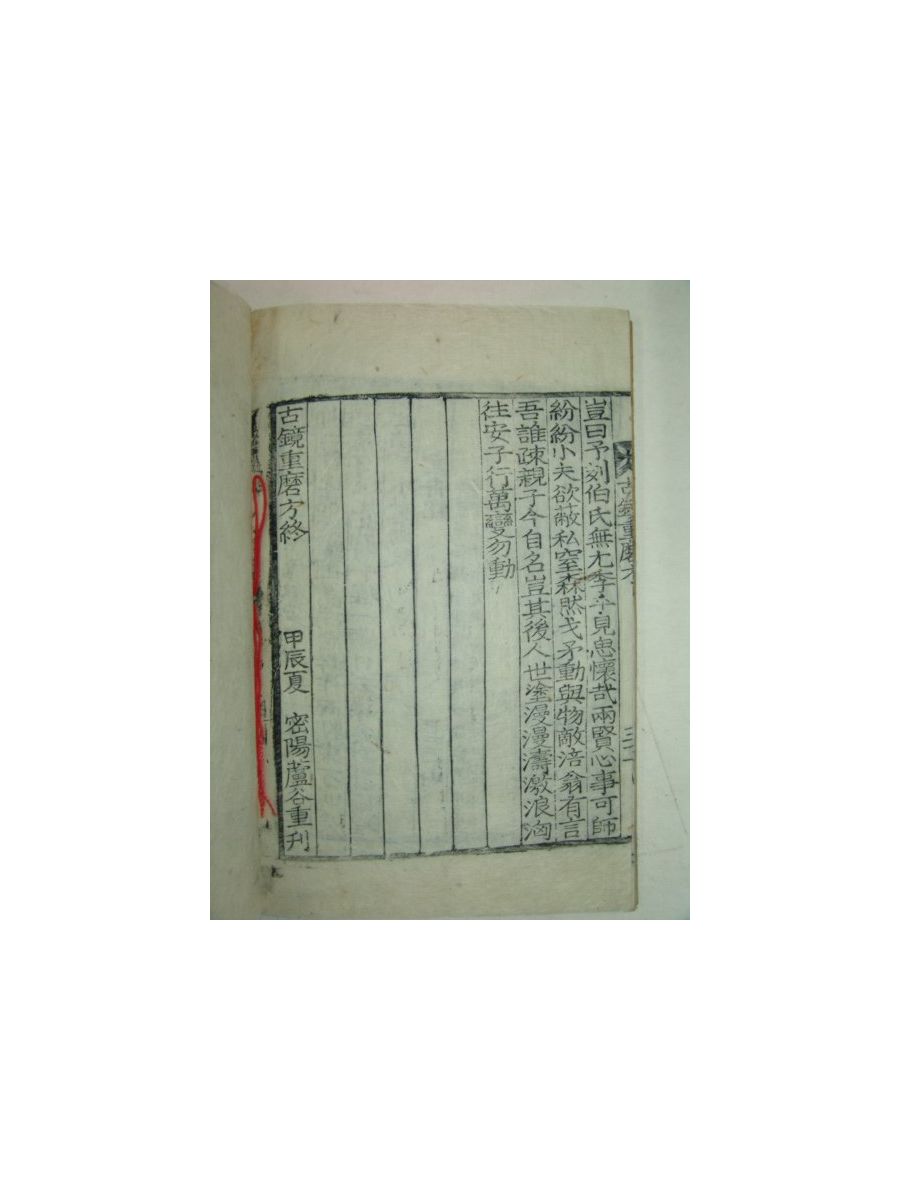 古鏡重磨方
豈曰予刻伯氏無尤季子見思懷哉兩賢心事可師
紛紛小夫欲蔽私窒森然戈矛動與物敵涪翁有言
吾誰疎親子今自名豈其後人世塗漫漫濤激浪洶
往安子行萬變勿動
古鏡重磨方終 甲辰夏 密陽蘆谷重刊